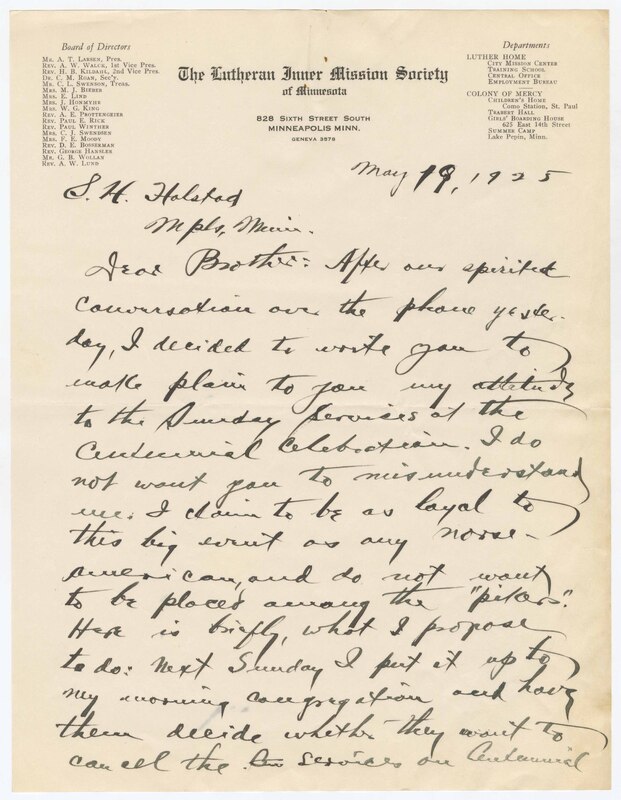 Board of Directors
Mr. A. T. Larsen, Pres.
Rev. A. W. Walck, 1st Vice Pres.
Rev. H. B. Kildahl, 2nd Vice Pres.
Dr. C. M. Roan, Sec'y.
Mr. C. L. Swenson, Treas.
Mrs. M. J. Bieber
Mrs. E. Lind
Mrs. J. Honmyhr
Mrs. W. G. King
Rev. A. E.
Rev. Paul E. Rick
Rev. Paul Winther
Mrs. C. J. Swendsen
Mrs. F. E. Moody
Rev. D. E. Bosserman
Rev. George Hansler
Mr. G. B. Wollan
Rev. A. W. Lund
The Lutheran Inner Mission Society
of Minnesota
828 Sixth Street South
Minneapolis Minn.
Geneva 3578
Departments
LUTHER HOME
City Mission Center
Training School
Central Office
Employment Bureau
COLONY OF MERCY
Children's Home
Como Station, St. Paul
Teabert Hall
Girls' Boarding House
625 East 14th Street
Summer Camp
Lake Pepin, Minn.
May 19, 1925
S. H. Holstad
Mpls, Minn.
Dear Brother: After our spirited
conversation over the phone yester-
day, I decided to write you to
make plain to you my attitude
to the Sunday services at the
Centennial Celebration. I do
not want you to misunderstand
me. I claim to be as loyal to
this big event as any norse-
american, and do not want
to be placed among the "pikers".
Here is briefly, what I propose
to do: Next Sunday I put it up to
my morning congregation and have
them decide whether they want to
cancel the services on Centennial